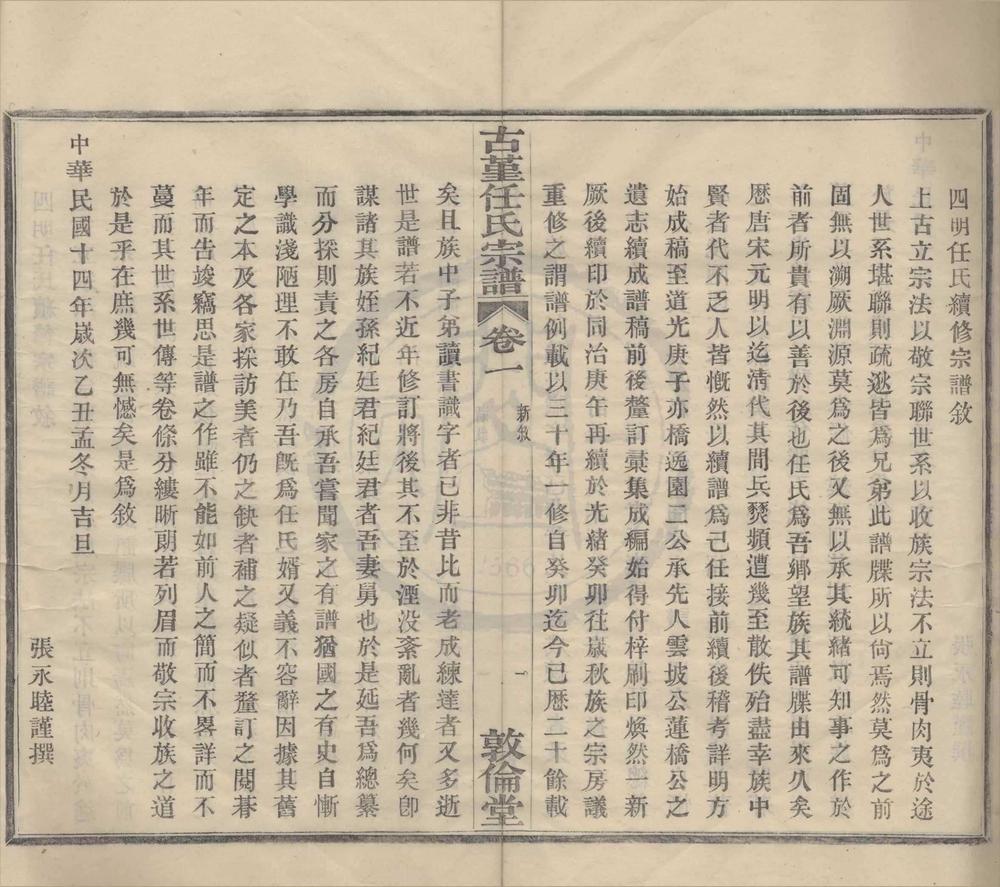 四明任氏續修宗譜敘
上古立宗法以敬宗聯世系以收族宗法不立則骨肉夷於途
人世系堪聯則疏逖皆爲兄弟此譜牒所以尙焉然莫爲之前
固無以溯厥淵源莫爲之後又無以承其統緒可知事之作於
前者所貴有以善於後也任氏爲吾鄉望族其譜牒由來久矣
歷唐宋元明以迄淸代其間兵燹頻遭幾至散佚殆盡幸族中
賢者代不乏人皆慨然以續譜爲己任接前續後稽考詳明方
始成稿至道光庚子亦橋逸園二公承先人雲坡公蓮橋公之
遺志續成譜稿前後釐訂彚集成編始得付梓刷印煥然一新
厥後續印於同治庚午再續於光緒癸卯往歲秋族之宗房議
重修之謂譜例載以三十年一修自癸卯迄今已歷二十餘載
古堇任氏宗譜
卷一
新敘
一
敦倫堂
矣且族中子弟讀書識字者已非昔比而老成練達者又多逝
世是譜若不近年修訂將後其不至於湮没紊亂者幾何矣卽
謀諸其族姪孫紀廷君紀廷君者吾妻舅也於是延吾爲總纂
而分採則責之各房自承吾嘗聞家之有譜猶國之有史自慚
學識淺陋理不敢任乃吾旣爲任氏婿又義不容辭因據其舊
定之本及各家採訪美者仍之缺者補之疑似者釐訂之閱朞
年而告竣竊思是譜之作雖不能如前人之簡而不畧詳而不
蔓而其世系世傳等卷條分縷晰朗若列眉而敬宗收族之道
於是乎在庶幾可無憾矣是爲敘
中華民國十四年歲次乙丑孟冬月吉旦
張永睦謹撰